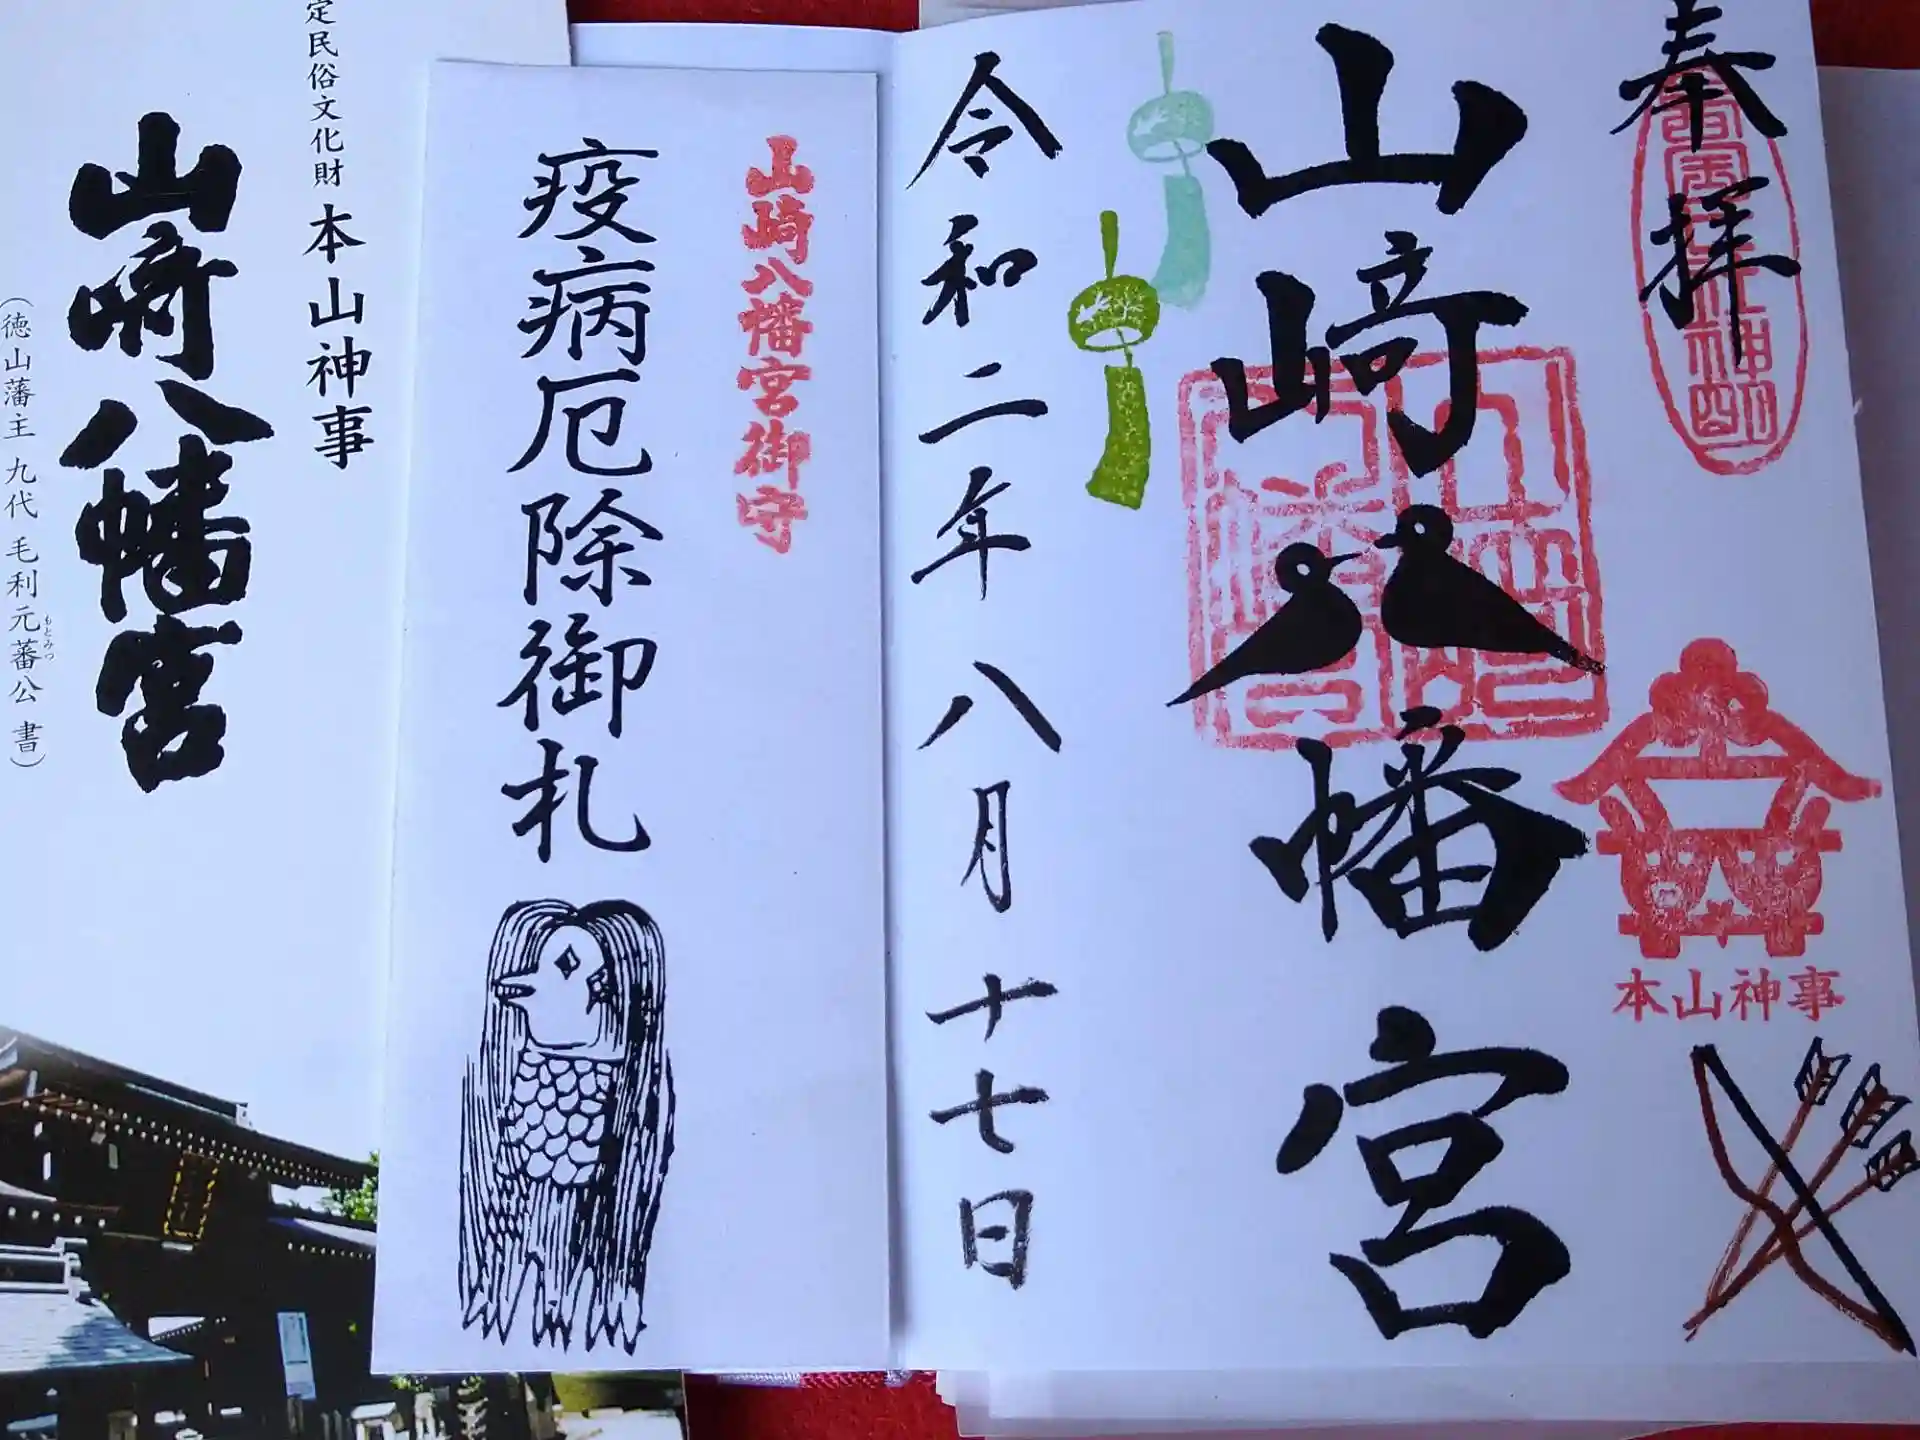 奉拝
山﨑八幡宮
本山神事
令和二年八月十七日
山崎八幡宮御守
疫病厄除御札
定民俗文化財 本山神事
山﨑八幡宮
(徳山藩主 九代 毛利元蕃公 書)
もとみつ